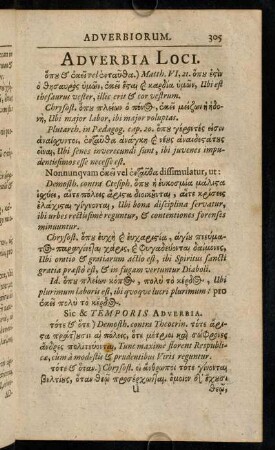 ADVERBIORUM. 305
ADVERBIA LOCI.
ὅπου & ἐκεῖ vel ἐνταῦθα.) Matth. VI, 21. ὅπου ἐςὶν
ὁ θησαυρὸς ὑμῶν, ἐκεῖ ἔςαι ἡ καρδία ὑμῶν, Ubi est
thesaurus vester, illic erit & cor vestrum.
Chrysost. ὅπου πλείων ὁ πόνος, ἐκεῖ μείζων ἡ ἡδο-
νή, Ubi major labor, ibi major voluptas.
Plutarch. in Pædagog. cap. 20. ὅπου γέροντές εἰσιν
ἀναίσχυντοι, ἐνταῦθα ἀνάγκη & νέους ἀναιδεςάτους
εἶναι, Ubi senes inverecundi sunt, ibi juvenes impu-
dentissimos esse necesse est.
Nonnunquam ἐκεῖ vel ἐνταῦθα dissimulatur, ut:
Demosth. contra Ctesiph. ὅπου ἡ εὐκοσμία μάλιςα
ἰσχύει, αἵτε πόλεις ἄριςα διοικοῦνται, αἵτε κρίσεις
ἐλάχιςαι γίγνονται, Ubi bona disciplina servatur,
ibi urbes rectissimè reguntur, & contentiones forenses
minuuntur.
Chrysost. ὅπου εὐχὴ & εὐχαριςία, ἁγίου πνεύμα-
τος παραγίνεται χάρις, & φυγαδεύονται δαίμονες,
Ubi oratio & gratiarum actio est, ibi Spiritus sancti
gratia præsto est, & in fugam vertuntur Diaboli.
Id. ὅπου πλείων κόπος, πολὺ τὸ κέρδος, Ubi
plurimum laboris est, ibi quoque lucri plurimum: pro
ἐκεῖ πολὺ τὸ κέρδος.
Sic & TEMPORIS ADVERBIA.
τότε & ὅτε.) Demosth. contra Theocrin. τότε ἄρι-
ςα πράττουσι αἱ πόλεις, ὅτε μέτριοι καὶ σώφρονες
ἄνδρες πολιτεύονται, Tunc maximè florent Respubli-
cæ, cùm à modestis & prudentibus Viris reguntur.
τότε & ὅταν.) Chrysost. οἱ ἄνθρωποι τότε γίνονται
βελτίους, ὅταν θεῷ προσέρχωνται.
U